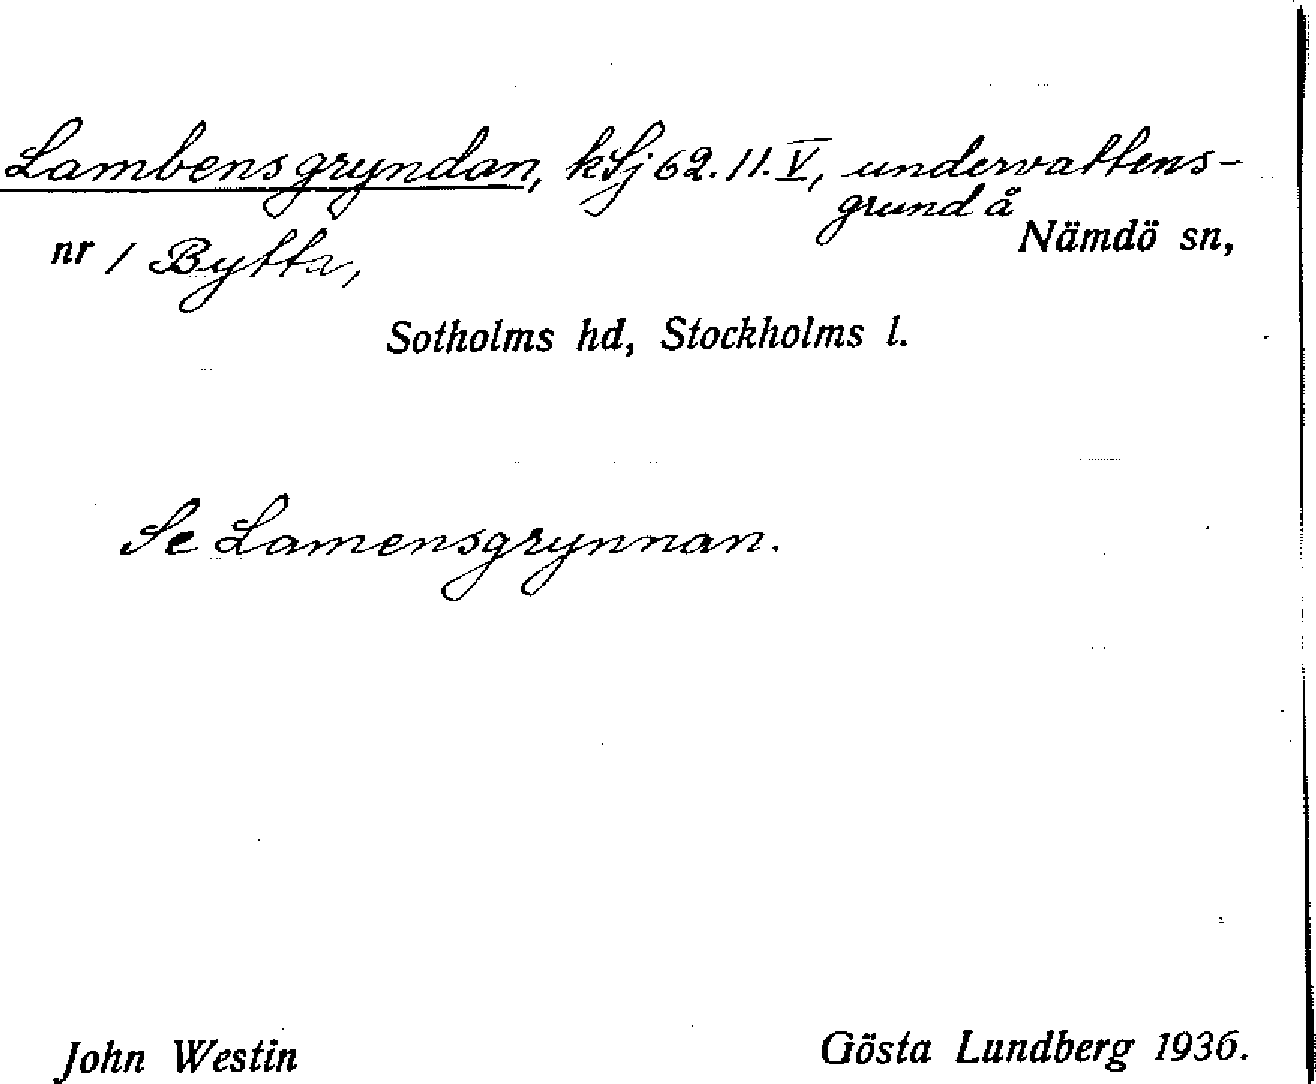 Lambensgryndan, kSj 62.11.V, undervattens-
grund å
nr 1 Bytta, Nämdö sn,
Sotholms hd, Stockholms l.
Se Lamensgrynnan.
John Westin Gösta Lundberg 1936.